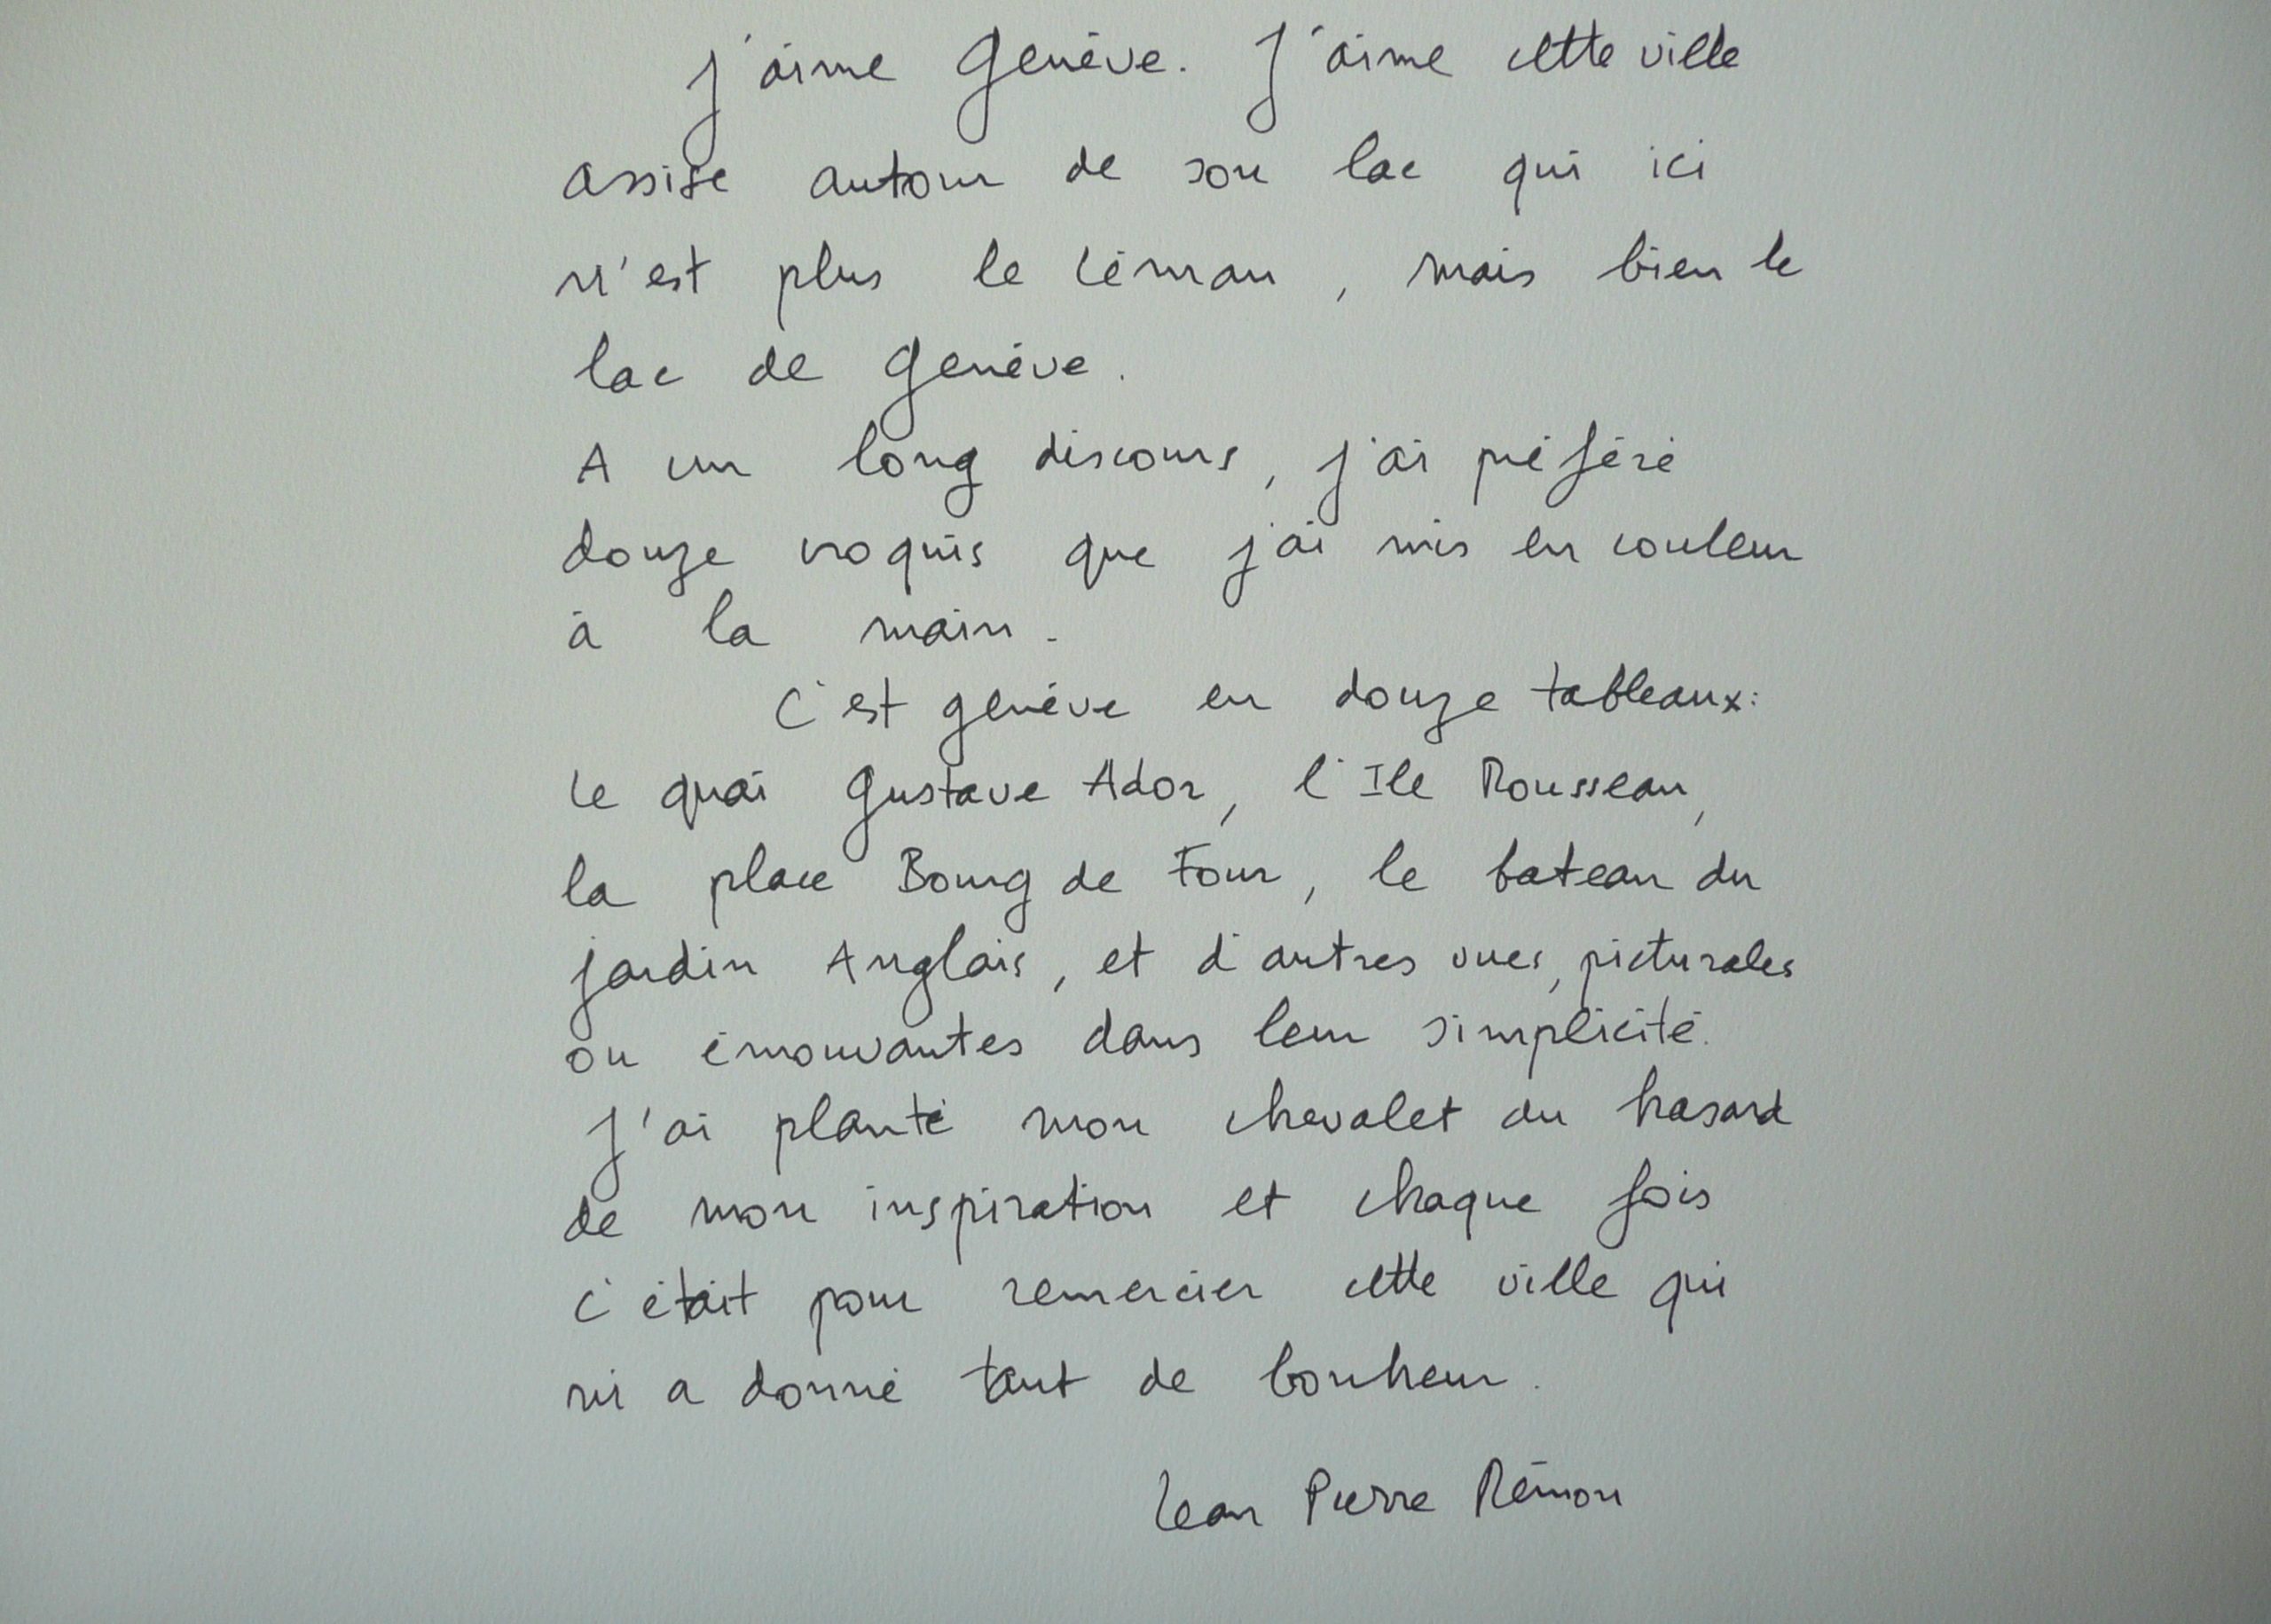 J'aime Genève. J'aime cette ville
assise autour de son lac qui ici
n'est plus le Léman, mais bien le
lac de Genève.
A un long discours, j'ai préféré
douze croquis que j'ai mis en couleur
à la main.
C'est genève en douze tableaux:
Le quai Gustave Ador, l'Ile Rousseau,
la place Bourg de Four, le bateau du
jardin Anglais, et d'autres vues, picturales
ou émouvantes dans leur simplicité.
J'ai planté mon chevalet au hasard
de mon inspiration et chaque fois
c'était pour remercier cette ville qui
m'a donné tant de bonheur.
Jean Pierre Rémon